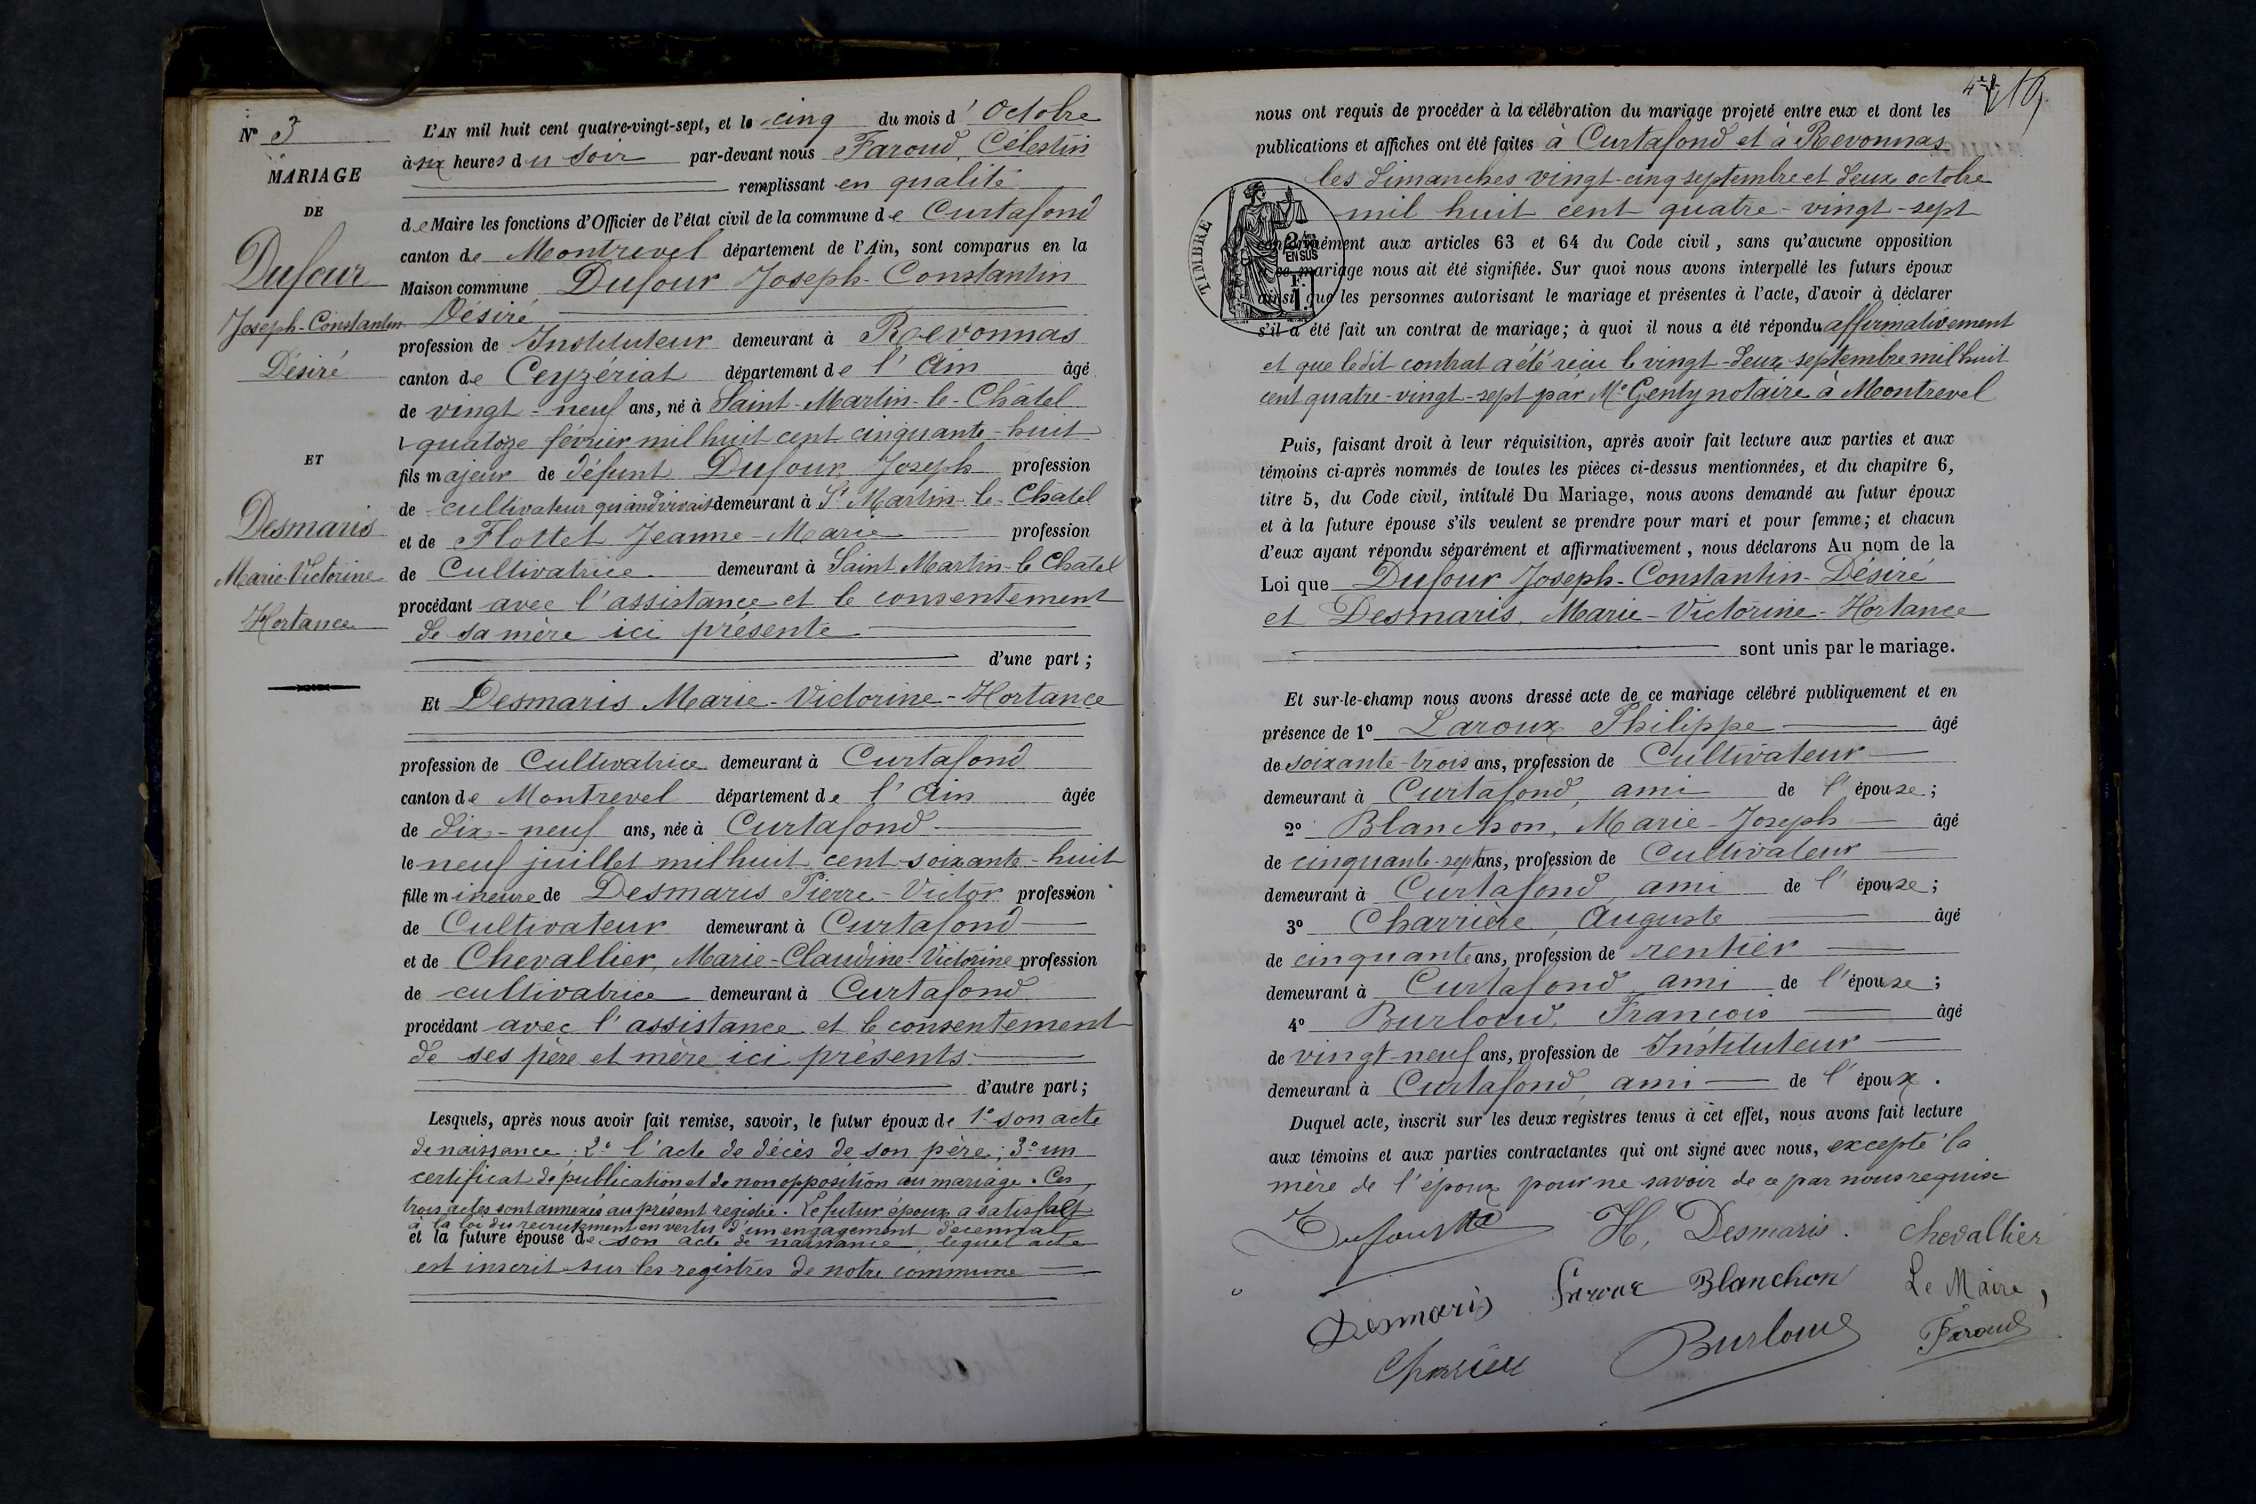 N° 3
MARIAGE
DE
Dufour
Joseph-Constantin
Désiré
ET
Desmaris
Marie-Victorine
Hortance
L'AN mil huit cent quatre-vingt-sept, et le cinq du mois d'Octobre
à six heures du soir par-devant nous Faroud, Célestin
remplissant en qualité
de Maire les fonctions d'Officier de l'état civil de la commune de Curtafond
canton de Montrevel département de l'Ain, sont comparus en la
Maison commune Dufour Joseph-Constantin
Désiré
profession de Instituteur demeurant à Revonnas
canton de Ceyzériat département de l'Ain âgé
de vingt-neuf ans, né à Saint-Martin-le-Châtel
quatorze février mil huit cent cinquante-huit
fils majeur de défunt Dufour, Joseph profession
de cultivateur quand vivait demeurant à St Martin-le-Châtel
et de Flottet Jeanne-Marie profession
de Cultivatrice demeurant à Saint Martin-le Châtel
procédant avec l'assistance et le consentement
de sa mère ici présente
d'une part ;
Et Desmaris Marie-Victorine-Hortance
profession de Cultivatrice demeurant à Curtafond
canton de Montrevel département de l'Ain âgée
de dix-neuf ans, née à Curtafond
le neuf juillet mil huit cent soixante-huit
fille mineure de Desmaris Pierre-Victor profession
de Cultivateur demeurant à Curtafond
et de Chevallier, Marie-Claudine-Victorine profession
de cultivatrice demeurant à Curtafond
procédant avec l'assistance et le consentement
de ses père et mère ici présents
d'autre part ;
Lesquels, après nous avoir fait remise, savoir, le futur époux de 1° son acte
de naissance ; 2° l'acte de décès de son père ; 3° un
certificat de publication et de non opposition au mariage. Ces
trois actes sont annexés au présent registre. Le futur époux a satisfait
à la loi du recrutement en vertu d'un engagement décennal
et la future épouse de son acte de naissance, lequel acte
est inscrit sur les registres de notre commune
nous ont requis de procéder à la célébration du mariage projeté entre eux et dont les
publications et affiches ont été faites à Curtafond et à Revonnas
les dimanches vingt-cinq septembre et deux octobre
mil huit cent quatre-vingt-sept
TIMBRE
EN SUS
conformément aux articles 63 et 64 du Code civil, sans qu'aucune opposition
à ce mariage nous ait été signifiée. Sur quoi nous avons interpellé les futurs époux
ainsi que les personnes autorisant le mariage et présentes à l'acte, d'avoir à déclarer
s'il a été fait un contrat de mariage ; à quoi il nous a été répondu affirmativement
et que ledit contrat a été reçu le vingt-deux septembre mil huit
cent quatre-vingt-sept par Me Genty notaire à Montrevel
Puis, faisant droit à leur réquisition, après avoir fait lecture aux parties et aux
témoins ci-après nommés de toutes les pièces ci-dessus mentionnées, et du chapitre 6,
titre 5, du Code civil, intitulé Du Mariage, nous avons demandé au futur époux
et à la future épouse s'ils veulent se prendre pour mari et pour femme ; et chacun
d'eux ayant répondu séparément et affirmativement, nous déclarons Au nom de la
Loi que Dufour Joseph-Constantin-Désiré
et Desmaris, Marie-Victorine-Hortance
sont unis par le mariage.
Et sur-le-champ nous avons dressé acte de ce mariage célébré publiquement et en
présence de 1° Laroux Philippe âgé
de soixante-trois ans, profession de Cultivateur
demeurant à Curtafond, ami de l'épouse ;
2° Blanchon, Marie-Joseph âgé
de cinquante-sept ans, profession de Cultivateur
demeurant à Curtafond ami de l'épouse ;
3° Charrière, Auguste âgé
de cinquante ans, profession de rentier
demeurant à Curtafond ami de l'épouse ;
4° Burloud, François âgé
de vingt-neuf ans, profession de Instituteur
demeurant à Curtafond, ami de l'époux.
Duquel acte, inscrit sur les deux registres tenus à cet effet, nous avons fait lecture
aux témoins et aux parties contractantes qui ont signé avec nous, excepté la
mère de l'époux pour ne savoir de ce par nous requise
Dufour H. Desmaris. Chevallier
Desmaris Laroux Blanchon Le Maire,
Burloud Faroud